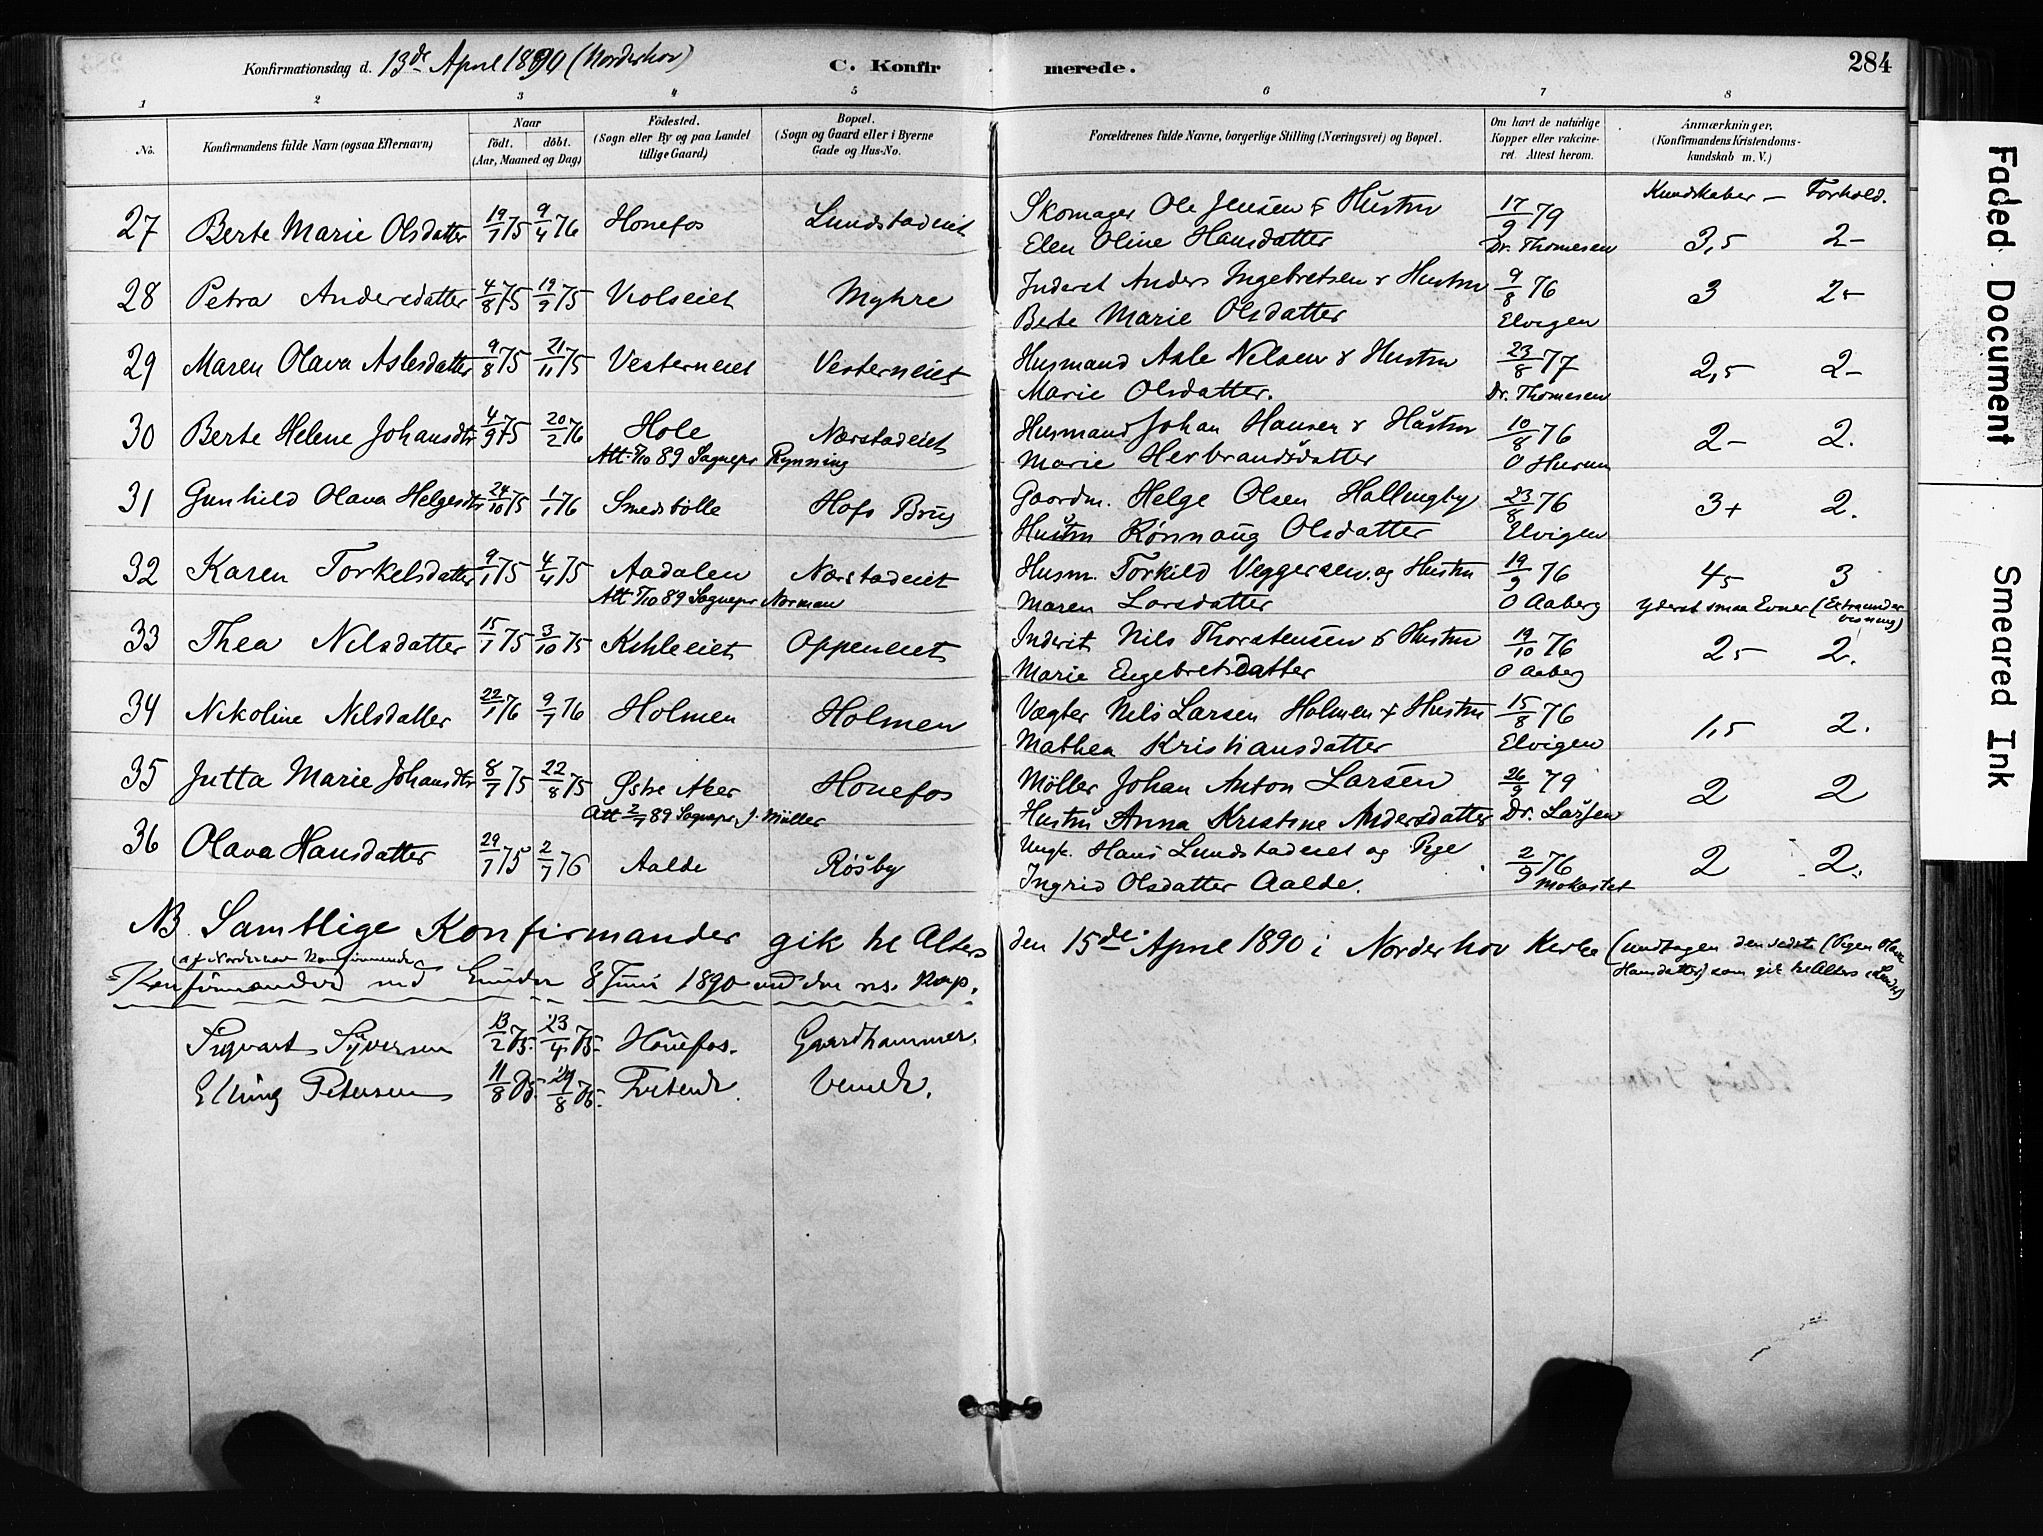 Konfirmationsdag d. 13de April 1890 (Norderhov) C. Konfirmerede. 284
1 2 3 4 5 6 7 8
No. Konfirmandens fulde Navn (ogsaa Efternavn) Naar födt. döbt. (Aar, Maaned og Dag) Födested. (Sogn eller By og paa Landet tillige Gaard) Bopæl. (Sogn og Gaard eller i Byerne Gade og Hus-No. Forældrenes fulde Navne, borgerlige Stilling (Næringsvei) og Bopæl. Om havt de naturlige Kopper eller vakcineret. Attest herom. Anmærkninger. (Konfirmandens Kristendomskundskab m. V.)
Kundskaber – Forhold.
27 Berte Marie Olsdatter 19/7 75 9/4 76 Hønefos Lundstadeiet Skomager Ole Jensen & Hustru 17/9 79
Elen Oline Hansdatter Dr. Thomesen 3,5 2-
28 Petra Andersdatter 4/8 75 19/9 75 Violseiet Myhre Inderst Anders Ingebretsen & Hustru 9/8 76 3 2-
Berte Marie Olsdatter Elvigen
29 Maren Olava Aslesdatter 9/8 75 21/11 75 Vesterneiet Vesterneiet Husmand Asle Nilsen & Hustru 23/8 77 2,5 2-
Marie Olsdatter. Dr. Thomesen
30 Berte Helene Johansdtr 4/9 75 20/2 76 Hole Nærstadeiet Husmand Johan Hansen & Hustru 10/8 76 2- 2.
89 Sognepr Rynning Marie Herbrandsdatter O Husum
31 Gunhild Olava Helgesdtr 24/10 75 1/1 76 Smedsbølle Hofs Brug Gaardm. Helge Olsen Hallingby 23/8 76 3+ 2.
Hustru Rønnaug Olsdatter Elvigen
32 Karen Torkelsdatter 9/1 75 4/4 75 Aadalen Nærstadeiet Husm. Torkild Veggersen og Hustru 19/9 76 4- 3
89 Sognepr Norman Maren Larsdatter O Aaberg yderst smaa Evner (Extraundervisning)
33 Thea Nilsdatter 15/7 75 3/10 75 Kihleeiet Oppeneiet Inderst Nils Thorstensen & Hustru 19/10 76 2- 2.
Marie Engebretsdatter O Aaberg
34 Nikoline Nilsdatter 22/1 76 9/7 76 Holmen Holmen Vægter Nils Larsen Holmen & Hustru 15/8 76 1,5 2.
Mathea Kristiansdatter Elvigen
35 Jutta Marie Johansdtr 8/7 75 22/8 75 Østre Aker Hønefos Møller Johan Anton Larsen 26/9 79 2 2
Att 2/7 89 Sognepr. J. Müller Hustru Anna Kristine Andersdatter Dr. Larsen
36 Olava Hansdatter 29/7 75 2/7 76 Aalde Røsby Ungk. Hans Lundstadeiet og Pige 2/9 76 2 2.
Ingrid Olsdatter Aalde. Mokastet
NB. Samtlige Konfirmander gik til Alters den 15de April 1890 i Norderhov Kirke (undtagen den sidste (Pigen Olava
Hansdatter) som gik til Alters i Lunder)
af Norderhov Konfirmander
Konfirmander ved Lunder 8 Juni 1890 ved den res. Kap.
Sigvart Syversen 13/2 75. 23/4 75. Hønefos. Gaardhammer.
Elling Petersen 11/8 75. 29/8 75. Tvetende. Veinde.
Faded Document
Smeared Ink